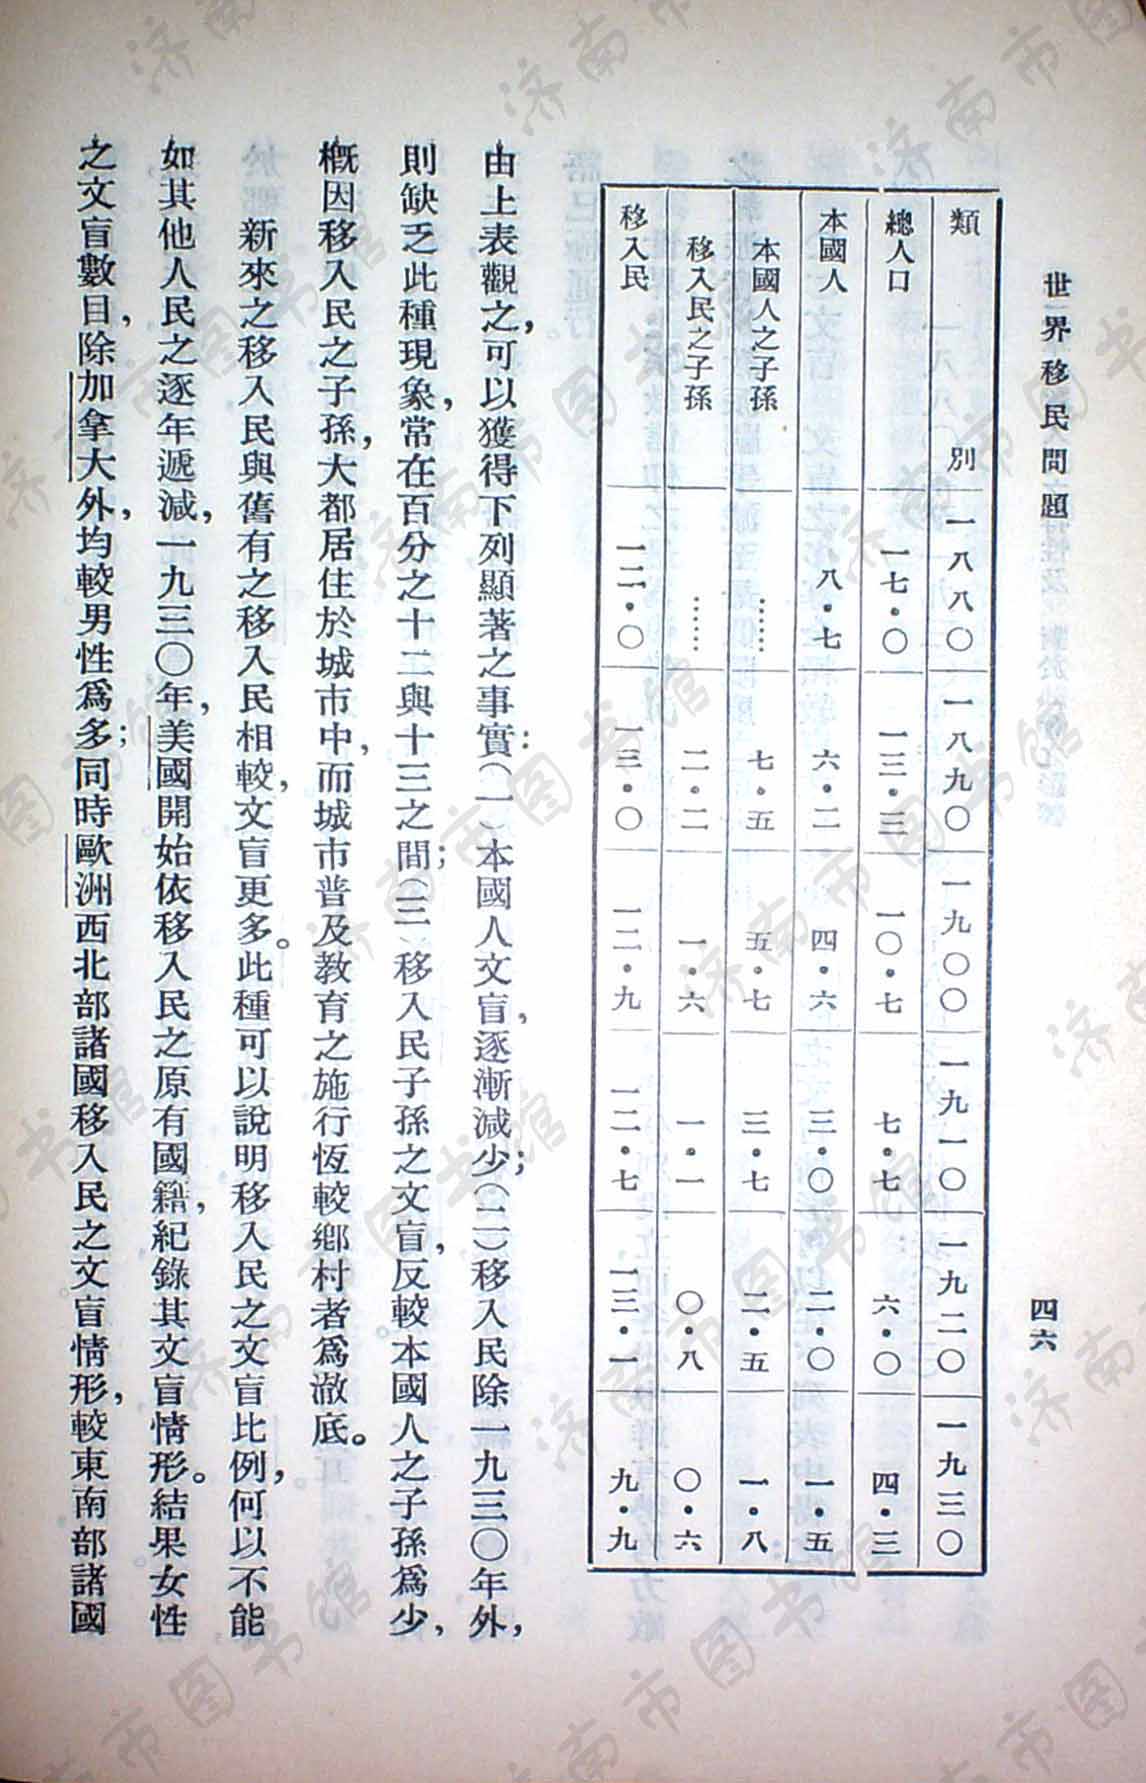 世界移民問題
四六
類別 一八八〇 一八九〇 一九〇〇 一九一〇 一九二〇 一九三〇
總人口 一七・〇 一三・三 一〇・七 七・七 六・〇 四・三
本國人 八・七 六・二 四・六 三・〇 二・〇 一・五
本國人之子孫 …… 七・五 五・七 三・七 二・五 一・八
移入民之子孫 …… 二・二 一・六 一・一 〇・八 〇・六
移入民 一二・〇 一三・〇 一二・九 一二・七 一三・一 九・九
由上表觀之，可以獲得下列顯著之事實：（一）本國人文盲，逐漸減少；（二）移入民除一九三〇年外，
則缺乏此種現象，常在百分之十二與十三之間；（三）移入民子孫之文盲，反較本國人之子孫爲少，
槪因移入民之子孫，大都居住於城市中，而城市普及教育之施行恆較鄉村者爲澈底。
新來之移入民與舊有之移入民相較，文盲更多。此種可以說明移入民之文盲比例，何以不能
如其他人民之逐年遞減，一九三〇年，美國開始依移入民之原有國籍，紀錄其文盲情形。結果女性
之文盲數目，除加拿大外，均較男性爲多；同時歐洲西北部諸國移入民之文盲情形，較東南部諸國
济南市图书馆